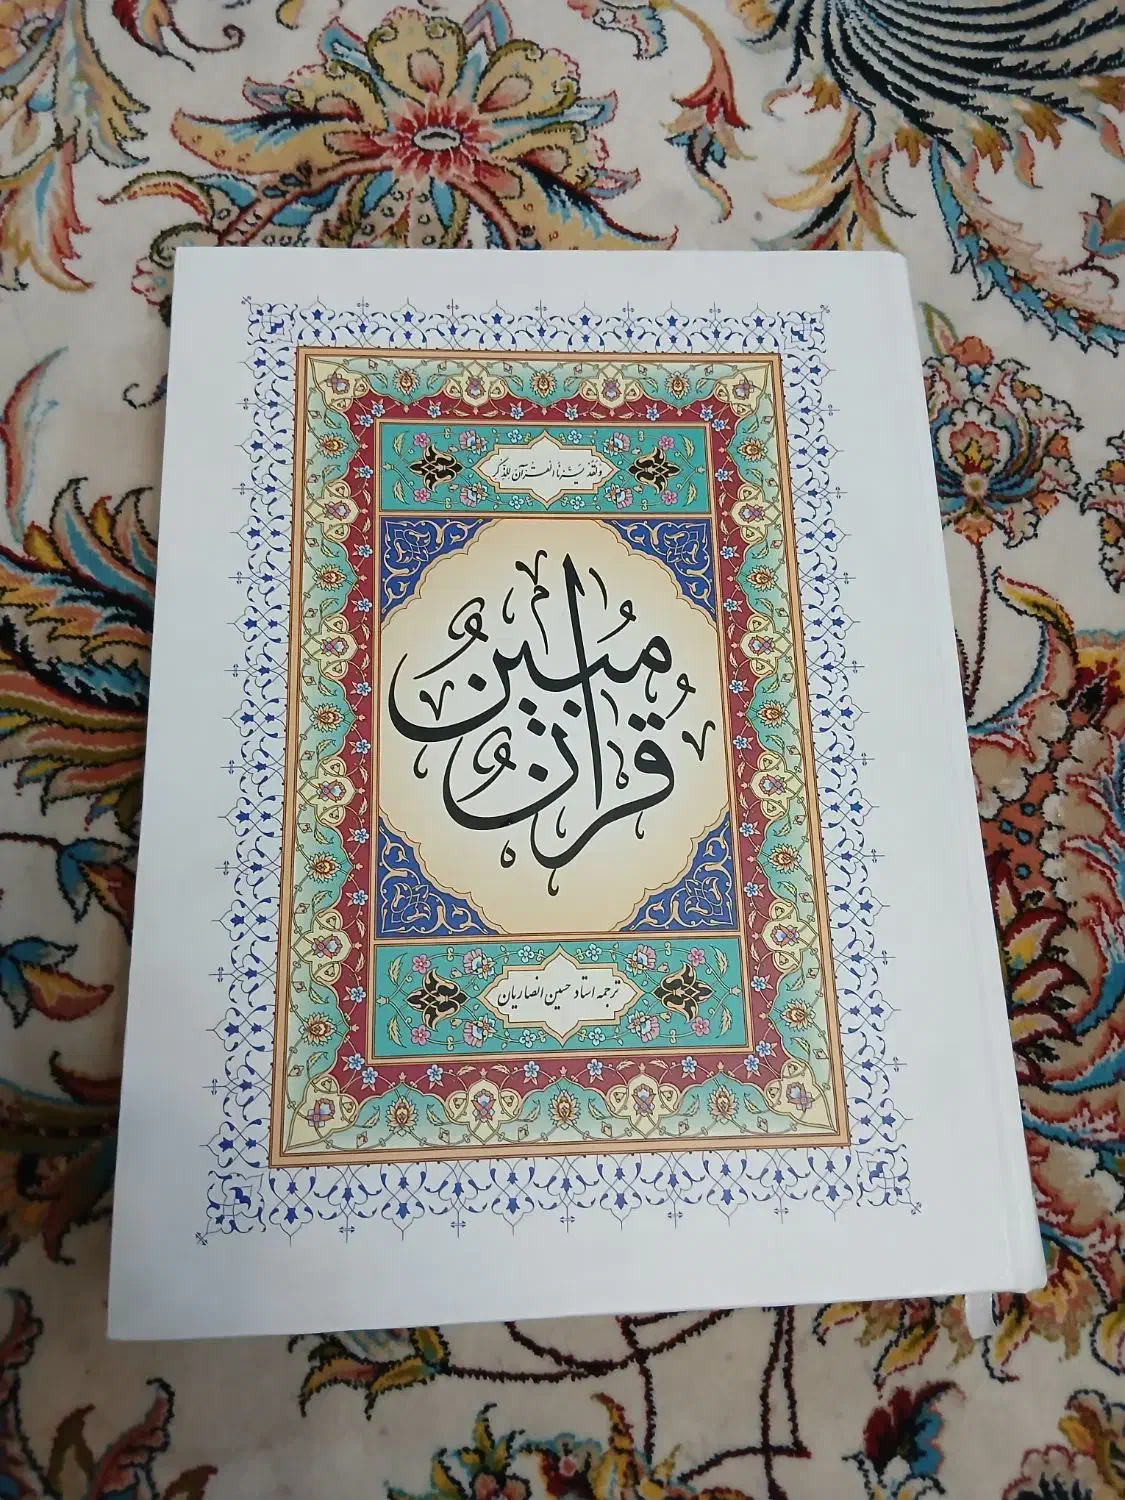 وَلَقَدْ يَسَّرْنَا الْقُرْآنَ لِلذِّكْرِ
قُرْآنٌ مُبِينٌ
ترجمه استاد حسین انصاریان